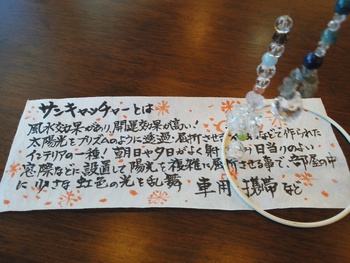 サンキャッチャーとは
風水効果があり、開運効果が高い!
太陽光をプリズムのように透過・屈折させる などで作られた
インテリアの一種、朝日や夕日がよく射 り日当りのよい
窓際などに設置して陽光を複雑に屈折させる事で、部屋の中
に小さな虹色の光を乱舞 車用 携帯など